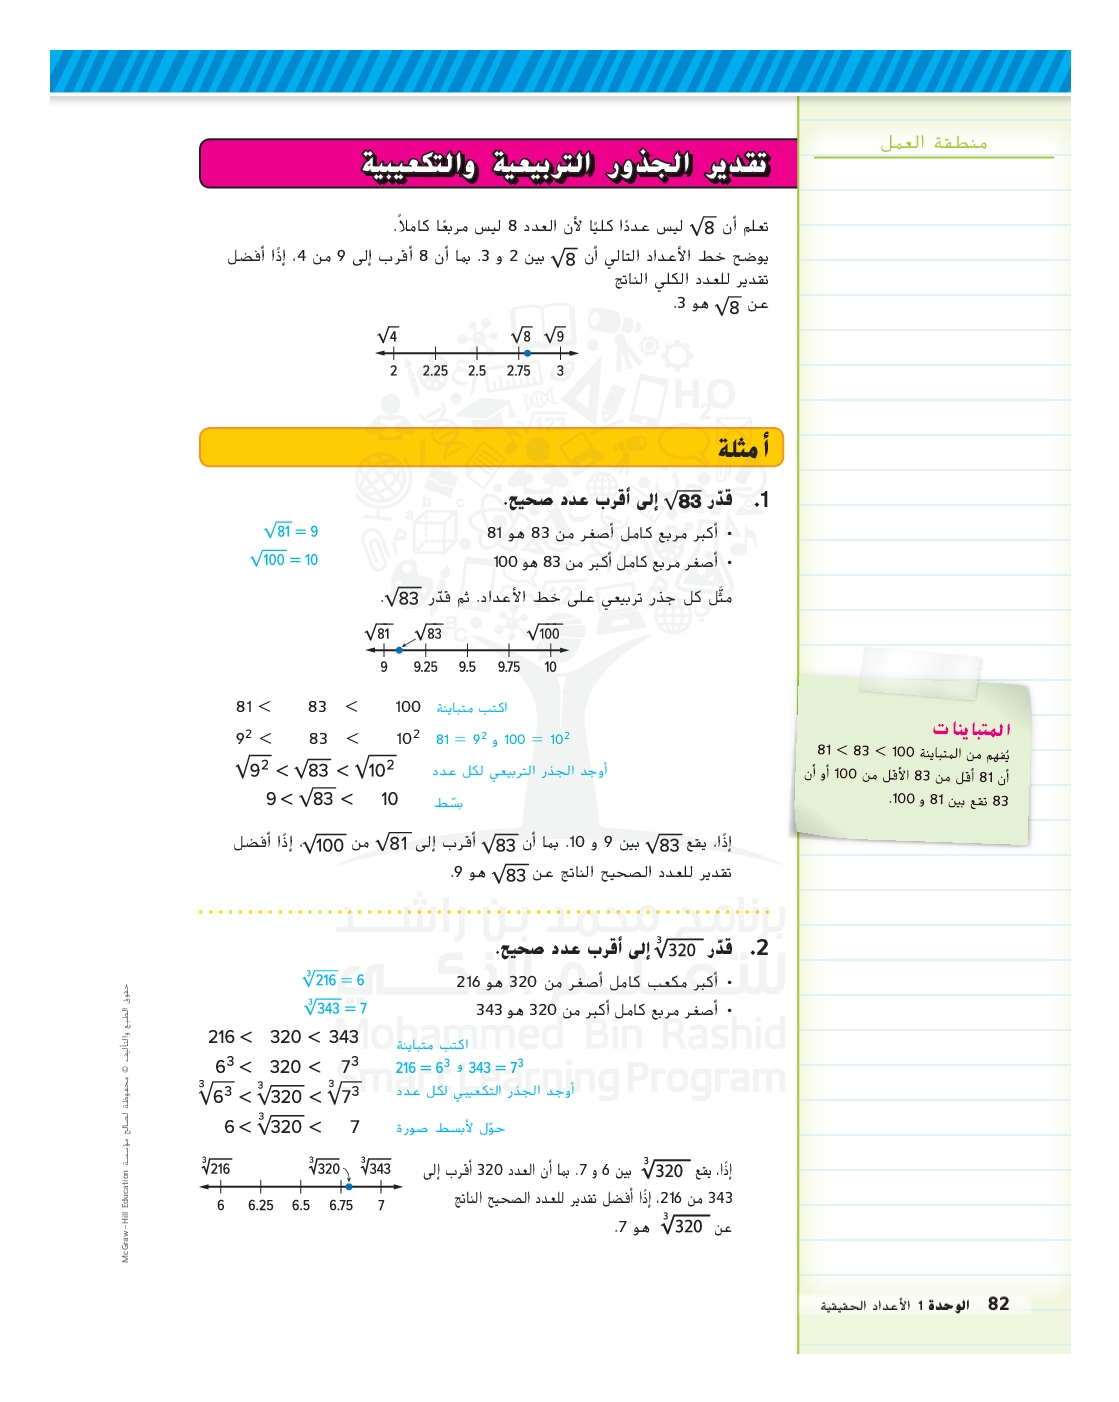 منطقة العمل
تقدير الجذور التربيعية والتكعيبية
تعلم أن √8 ليس عددًا كليًا لأن العدد 8 ليس مربعًا كاملاً.
يوضح خط الأعداد التالي أن √8 بين 2 و 3. بما أن 8 أقرب إلى 9 من 4، إذًا أفضل
تقدير للعدد الكلي الناتج
عن √8 هو 3.
√4 √8 √9
2 2.25 2.5 2.75 3
أمثلة
1. قدّر √83 إلى أقرب عدد صحيح.
• أكبر مربع كامل أصغر من 83 هو 81 √81 = 9
• أصغر مربع كامل أكبر من 83 هو 100 √100 = 10
مثّل كل جذر تربيعي على خط الأعداد. ثم قدّر √83.
√81 √83 √100
9 9.25 9.5 9.75 10
81 < 83 < 100 اكتب متباينة
9² < 83 < 10² 81 = 9² و 100 = 10²
√9² < √83 < √10² أوجد الجذر التربيعي لكل عدد
9 < √83 < 10 بسّط
إذًا، يقع √83 بين 9 و 10. بما أن √83 أقرب إلى √81 من √100، إذًا أفضل
تقدير للعدد الصحيح الناتج عن √83 هو 9.
المتباينات
يُفهم من المتباينة 81 < 83 < 100
أن 81 أقل من 83 الأقل من 100 أو أن
83 تقع بين 81 و 100.
2. قدّر ∛320 إلى أقرب عدد صحيح.
• أكبر مكعب كامل أصغر من 320 هو 216 ∛216 = 6
• أصغر مربع كامل أكبر من 320 هو 343 ∛343 = 7
216 < 320 < 343 اكتب متباينة
6³ < 320 < 7³ 216 = 6³ و 343 = 7³
∛6³ < ∛320 < ∛7³ أوجد الجذر التكعيبي لكل عدد
6 < ∛320 < 7 حوّل لأبسط صورة
إذًا، يقع ∛320 بين 6 و 7. بما أن العدد 320 أقرب إلى
343 من 216، إذًا أفضل تقدير للعدد الصحيح الناتج
عن ∛320 هو 7.
∛216 ∛320 ∛343
6 6.25 6.5 6.75 7
برنامج محمد بن راشد
للتعلم الذكي
Mohammed Bin Rashid
Smart Learning Program
حقوق الطبع والتأليف © محفوظة لصالح مؤسسة McGraw-Hill Education
82 الوحدة 1 الأعداد الحقيقية